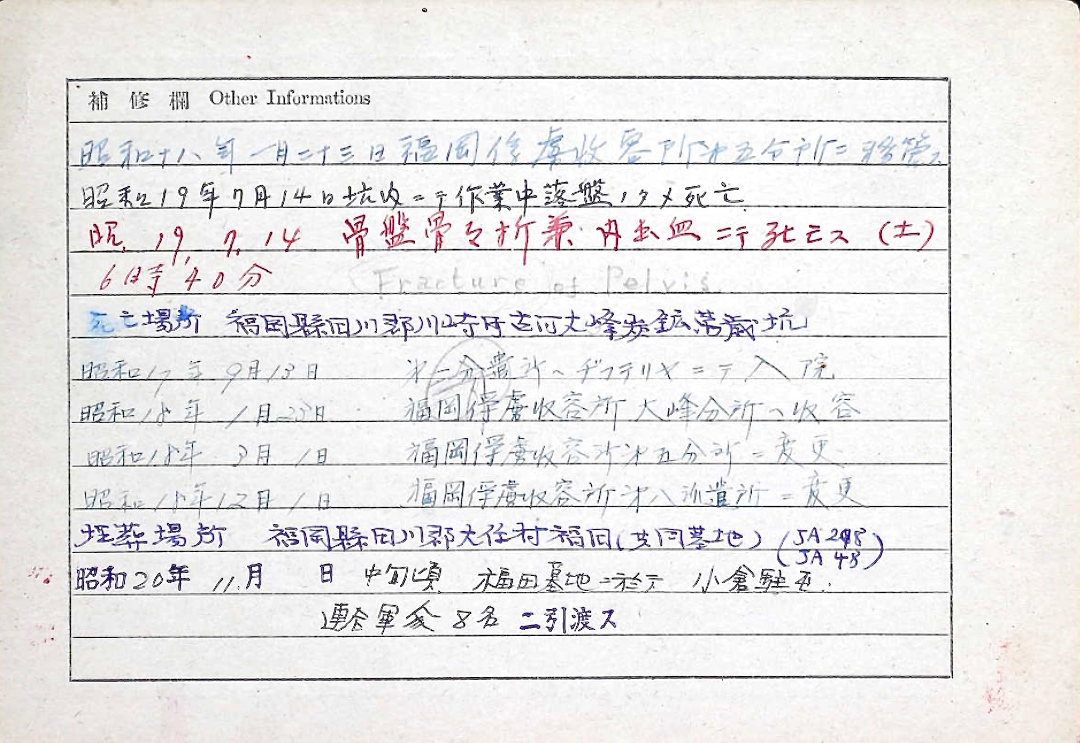 補修欄 Other Informations
昭和十八年一月二十三日福岡俘虜收容所第五分所ニ移管ス
昭和19年7月14日坑内ニテ作業中落盤ノタメ死亡
昭. 19. 7. 14 骨盤骨々折兼内出血ニテ死亡ス (土)
6時40分 (Fracture of Pelvis.
死亡場所 福岡縣田川郡川崎町古河大峰炭鉱蔵坑
昭和17年9月13日 第一分遣所ヘヂフテリヤニテ入院
昭和18年1月23日 福岡俘虜收容所大峰分所ヘ收容
昭和18年3月1日 福岡俘虜收容所第五分所ニ変更
昭和18年12月1日 福岡俘虜收容所第八派遣所ニ変更
埋葬場所 福岡縣田川郡大任村福田(共同墓地) (JA 298
JA 43)
昭和20年11月 日 中旬頃 福田墓地ニ於テ 小倉駐屯
連合軍 8名ニ引渡ス